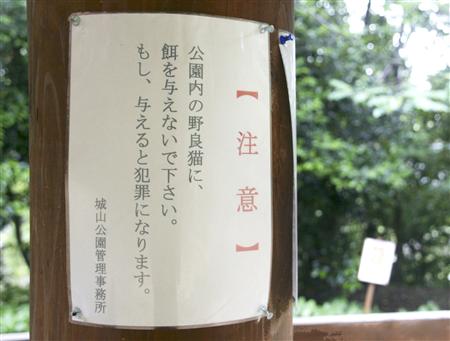 【注意】
公園内の野良猫に、
餌を与えないで下さい。
もし、与えると犯罪になります。
城山公園管理事務所